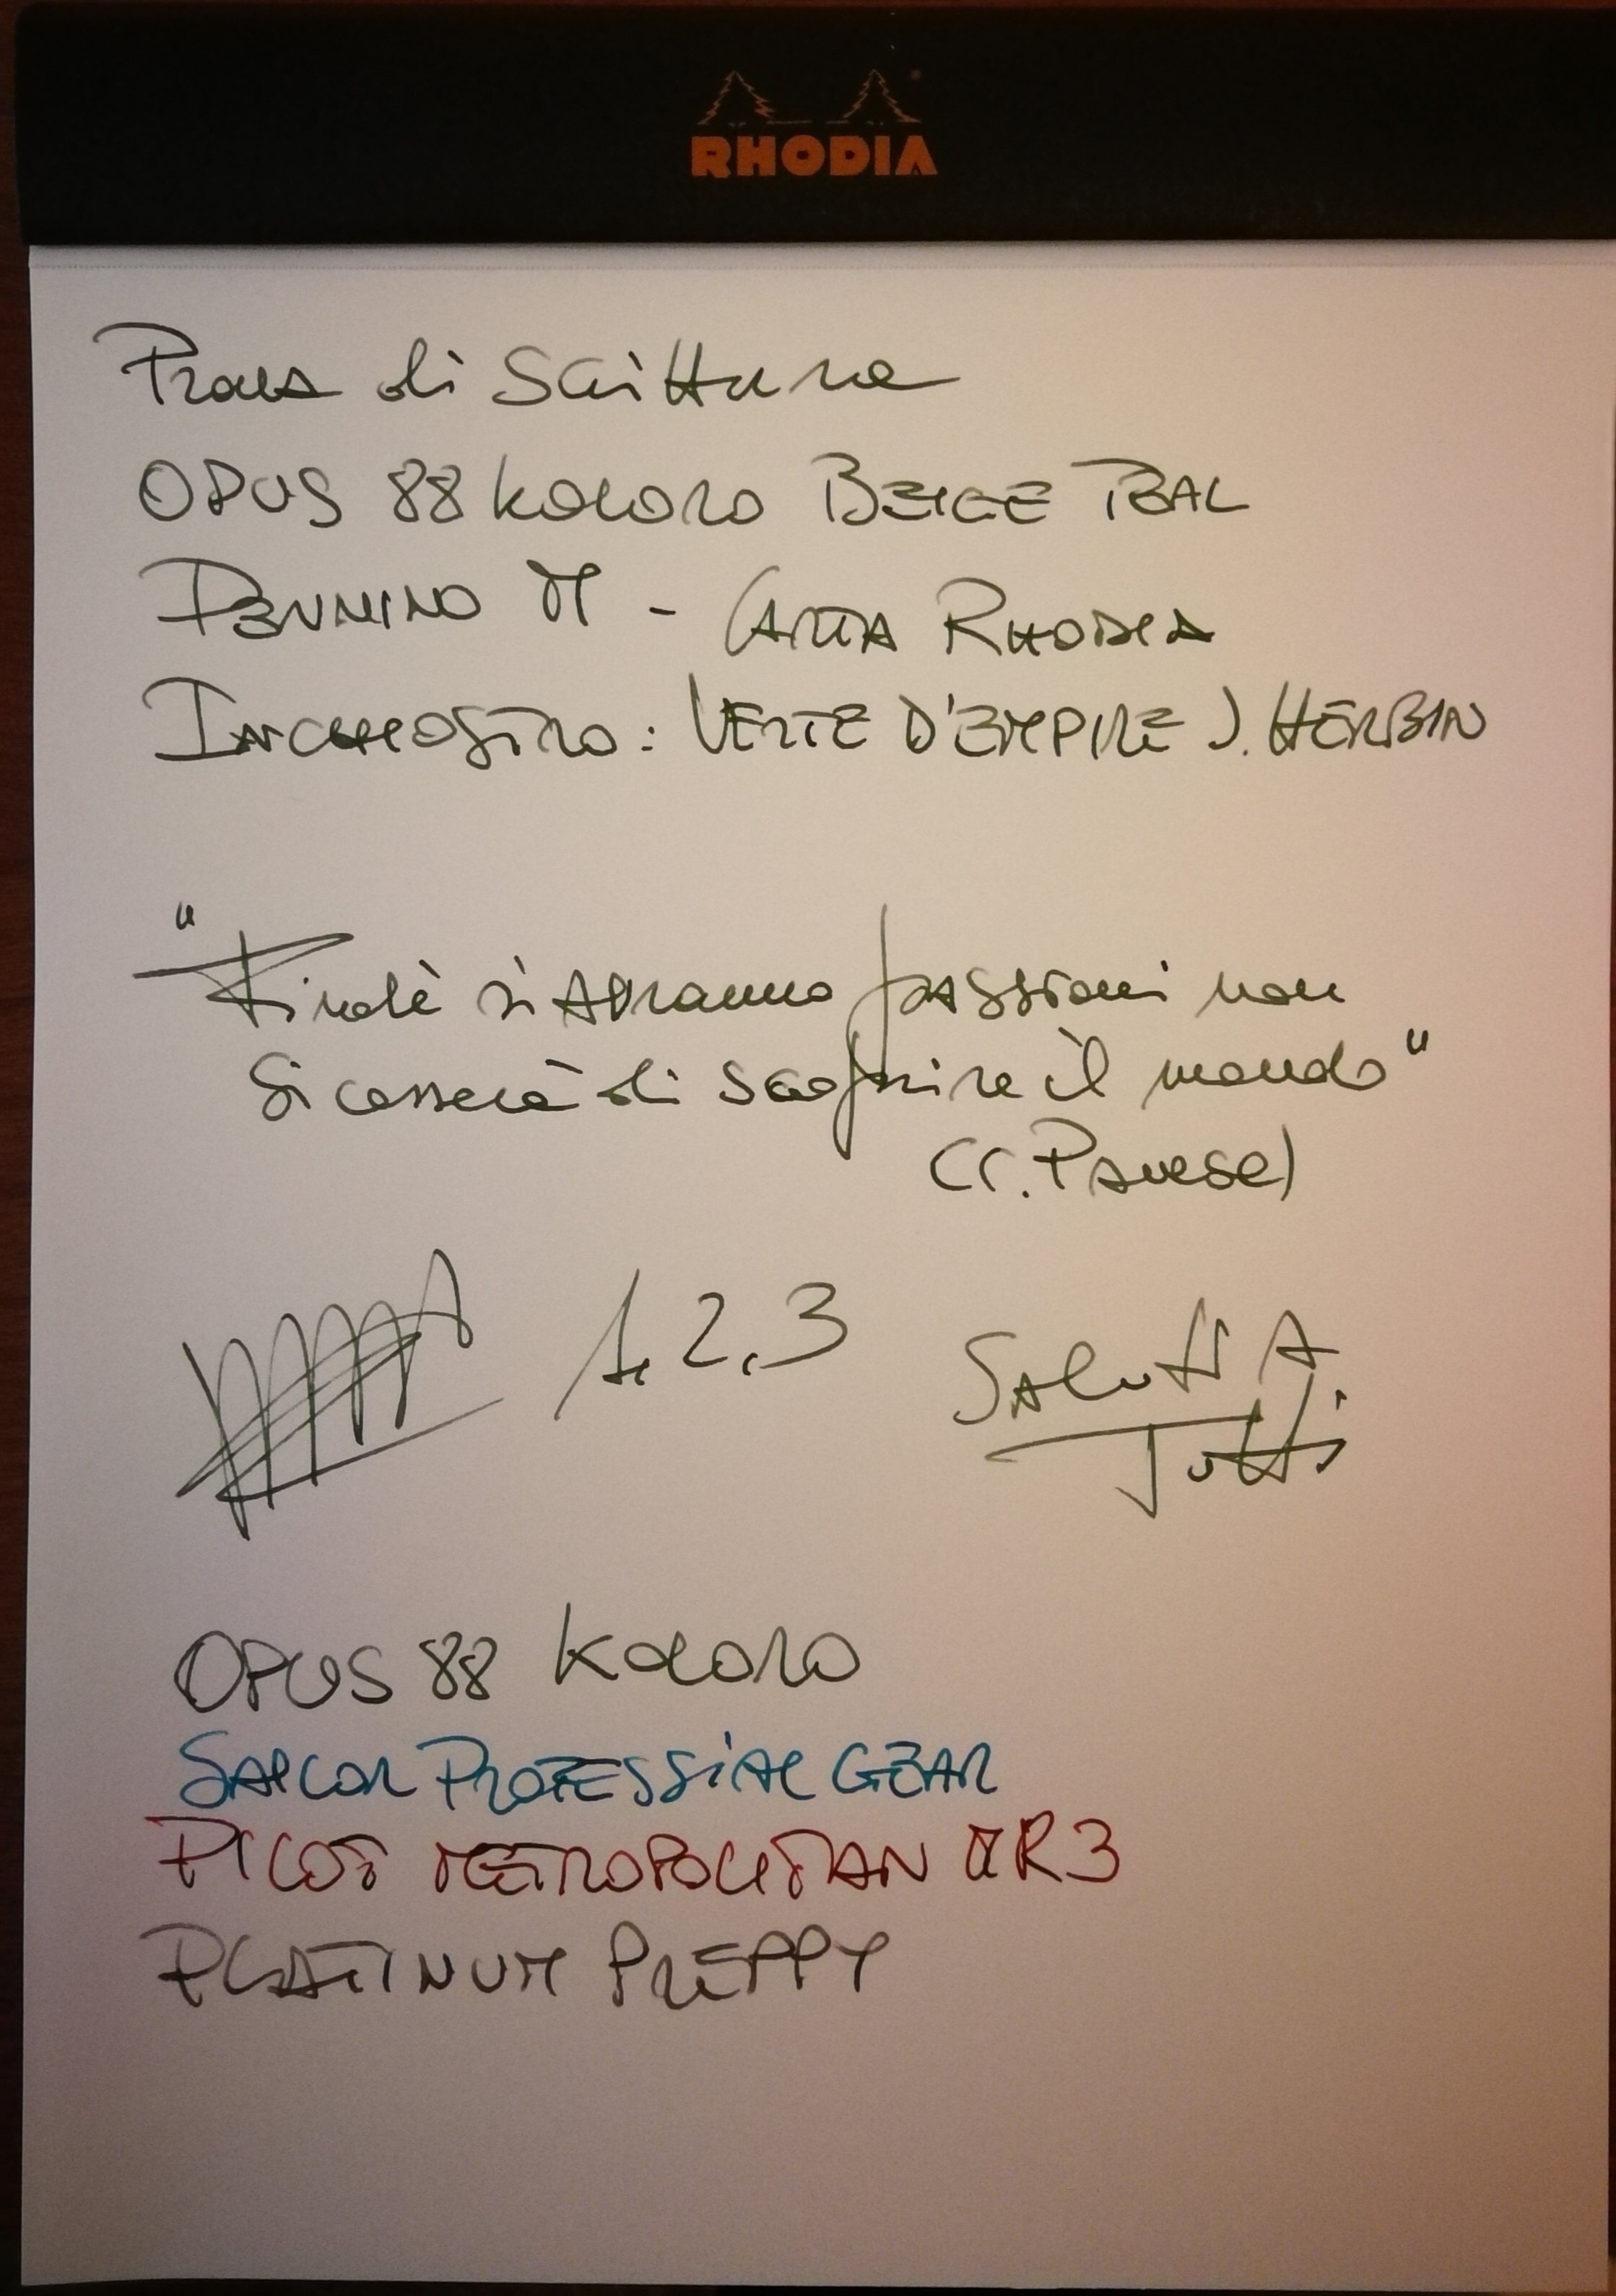 RHODIA
Prova di Scrittura
OPUS 88 Koloro BEIGE TEAL
PENNINO M - CARTA RHODIA
INCHIOSTRO: VERTE D'EMPIRE J. HERBIN
"Finchè si Avranno passioni non
Si cesserà di scoprire il mondo"
(C. Pavese)
1, 2, 3
Saluti A
Tutti
OPUS 88 Koloro
SAILOR PROFESSIAL GEAR
PILOT METROPOLITAN MR3
PLATINUM PREPPY